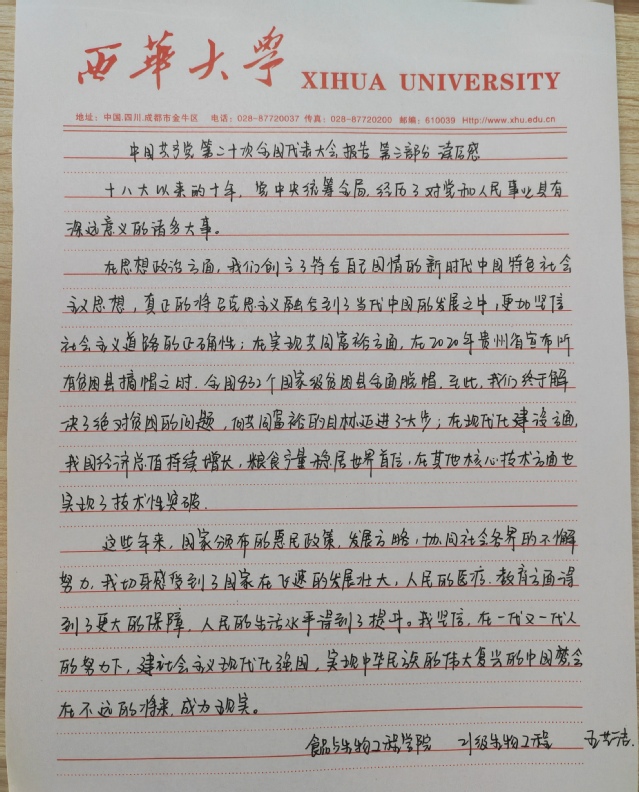 西華大學 XIHUA UNIVERSITY
地址：中国.四川.成都市金牛区 电话：028-87720037 传真：028-87720200 邮编：610039 Http://www.xhu.edu.cn
中国共产党第二十次全国代表大会报告 第三部分 读后感
十八大以来的十年，党中央统筹全局，经历了对党和人民事业具有
深远意义的诸多大事。
在思想政治方面，我们创立了符合自己国情的新时代中国特色社会
主义思想，真正的将马克思主义融合到了当代中国的发展之中，更加坚信
社会主义道路的正确性；在实现共同富裕方面，在2020年贵州省宣布所
有贫困县摘帽之时，全国832个国家级贫困县全面脱帽，至此，我们终于解
决了绝对贫困的问题，向共同富裕的目标迈进了一大步；在现代化建设方面，
我国经济总值持续增长，粮食产量稳居世界首位，在其他核心技术方面也
实现了技术性突破.
这些年来，国家颁布的惠民政策，发展方略，协同社会各界的不懈
努力，我切身感受到了国家在飞速的发展壮大，人民的医疗、教育方面得
到了更大的保障，人民的生活水平得到了提升。我坚信，在一代又一代人
的努力下，建社会主义现代化强国，实现中华民族的伟大复兴的中国梦会
在不远的将来，成为现实。
食品与生物工程学院 21级生物工程